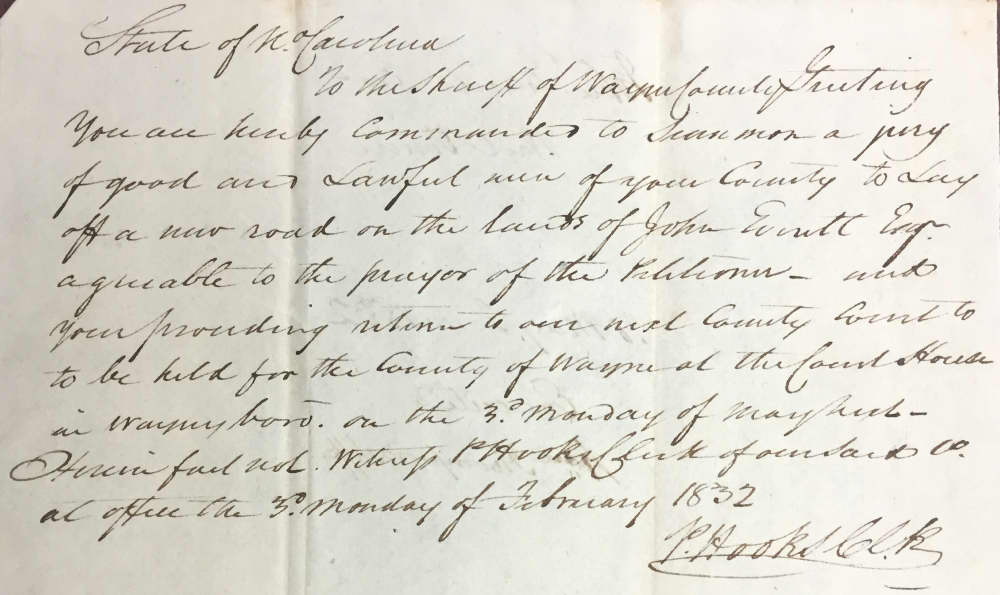 State of No Carolina
To the Sheriff of Wayne County Greeting
You are hereby Commanded to Summon a jury
of good and Lawful men of your County to Lay
off a new road on the lands of John Everett Esqr.
agreable to the prayor of the Petitioner - and
your proceeding return to our next County Court to
to be held for the County of Wayne at the Court House
in Waynesboro. on the 3d Monday of May next -
Herein fail not. Witness P Hooks Clerk of our said Co.
at office the 3d Monday of February 1832
P. Hooks Cl.k